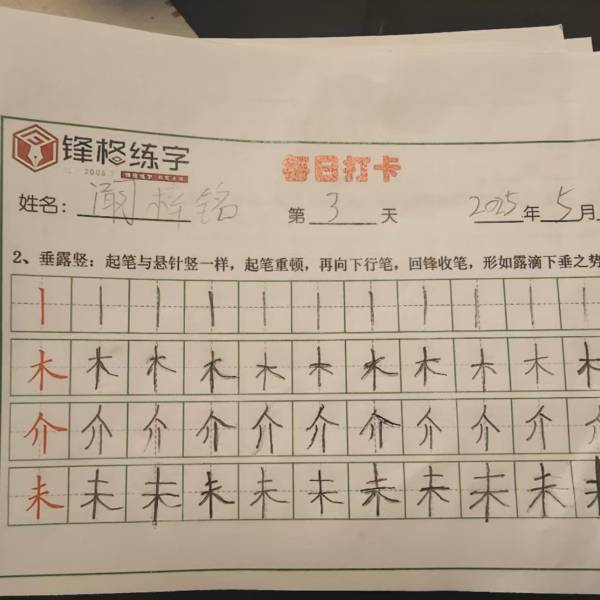 锋格练字
2005
每日打卡
姓名：阚梓铭 第 3 天 2025 年 5 月
2、垂露竖：起笔与悬针竖一样，起笔重顿，再向下行笔，回锋收笔，形如露滴下垂之势
丨 丨 丨 丨 丨 丨 丨 丨 丨 丨 丨
木 木 木 木 木 木 木 木 木 木 木
介 介 介 介 介 介 介 介 介 介 介
未 未 未 未 未 未 未 未 未 未 未